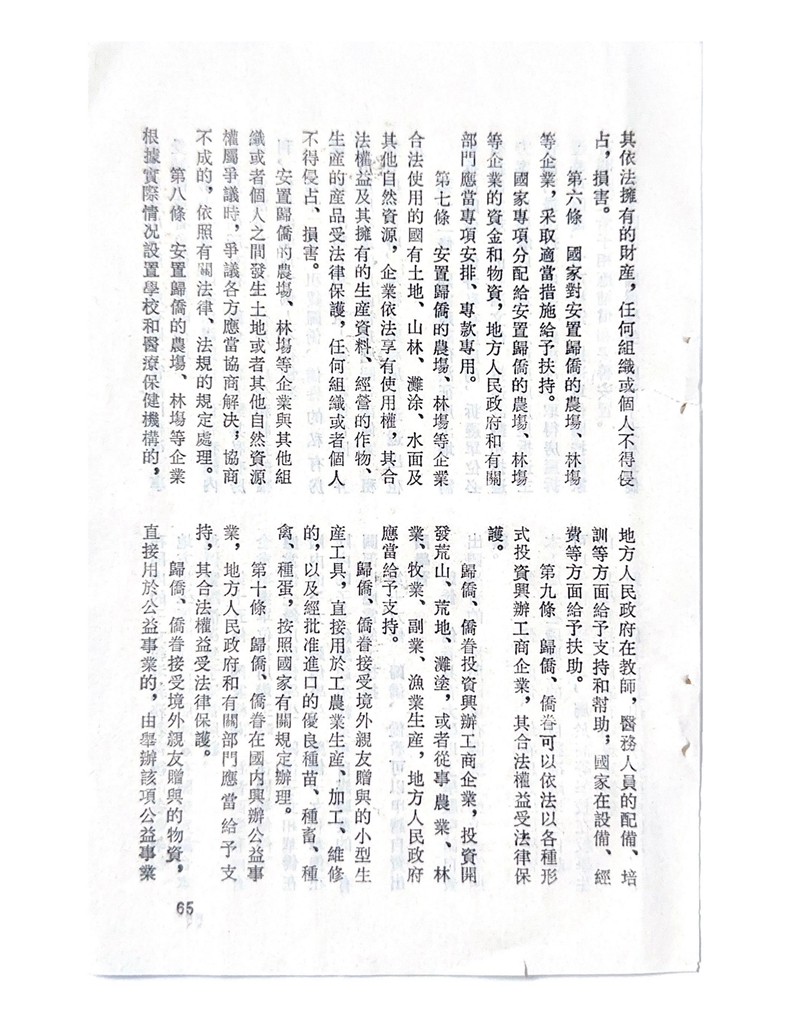 其依法擁有的財産，任何組織或個人不得侵
占，損害。
第六條　國家對安置歸僑的農塲、林塲
等企業，采取適當措施給予扶持。
國家專項分配給安置歸僑的農塲、林塲
等企業的資金和物資，地方人民政府和有關
部門應當專項安排、專款專用。
第七條　安置歸僑的農塲、林塲等企業
合法使用的國有土地、山林、灘涂、水面及
其他自然資源，企業依法享有使用權，其合
法權益及其擁有的生産資料、經營的作物、
生産的産品受法律保護，任何組織或者個人
不得侵占、損害。
安置歸僑的農塲、林塲等企業與其他組
織或者個人之間發生土地或者其他自然資源
權屬爭議時，爭議各方應當協商解决；協商
不成的，依照有關法律、法規的規定處理。
第八條　安置歸僑的農塲、林塲等企業
根據實際情况設置學校和醫療保健機構的，
地方人民政府在教師，醫務人員的配備、培
訓等方面給予支持和幇助，國家在設備、經
費等方面給予扶助。
第九條　歸僑、僑眷可以依法以各種形
式投資興辦工商企業，其合法權益受法律保
護。
歸僑、僑眷投資興辦工商企業，投資開
發荒山、荒地、灘塗，或者從事農業、林
業、牧業、副業、漁業生産，地方人民政府
應當給予支持。
歸僑、僑眷接受境外親友贈與的小型生
産工具，直接用於工農業生産、加工、維修
的，以及經批准進口的優良種苗、種畜、種
禽、種蛋，按照國家有關規定辦理。
第十條　歸僑、僑眷在國内興辦公益事
業，地方人民政府和有關部門應當給予支
持，其合法權益受法律保護。
歸僑、僑眷接受境外親友贈與的物資，
直接用於公益事業的，由舉辦該項公益事業
65